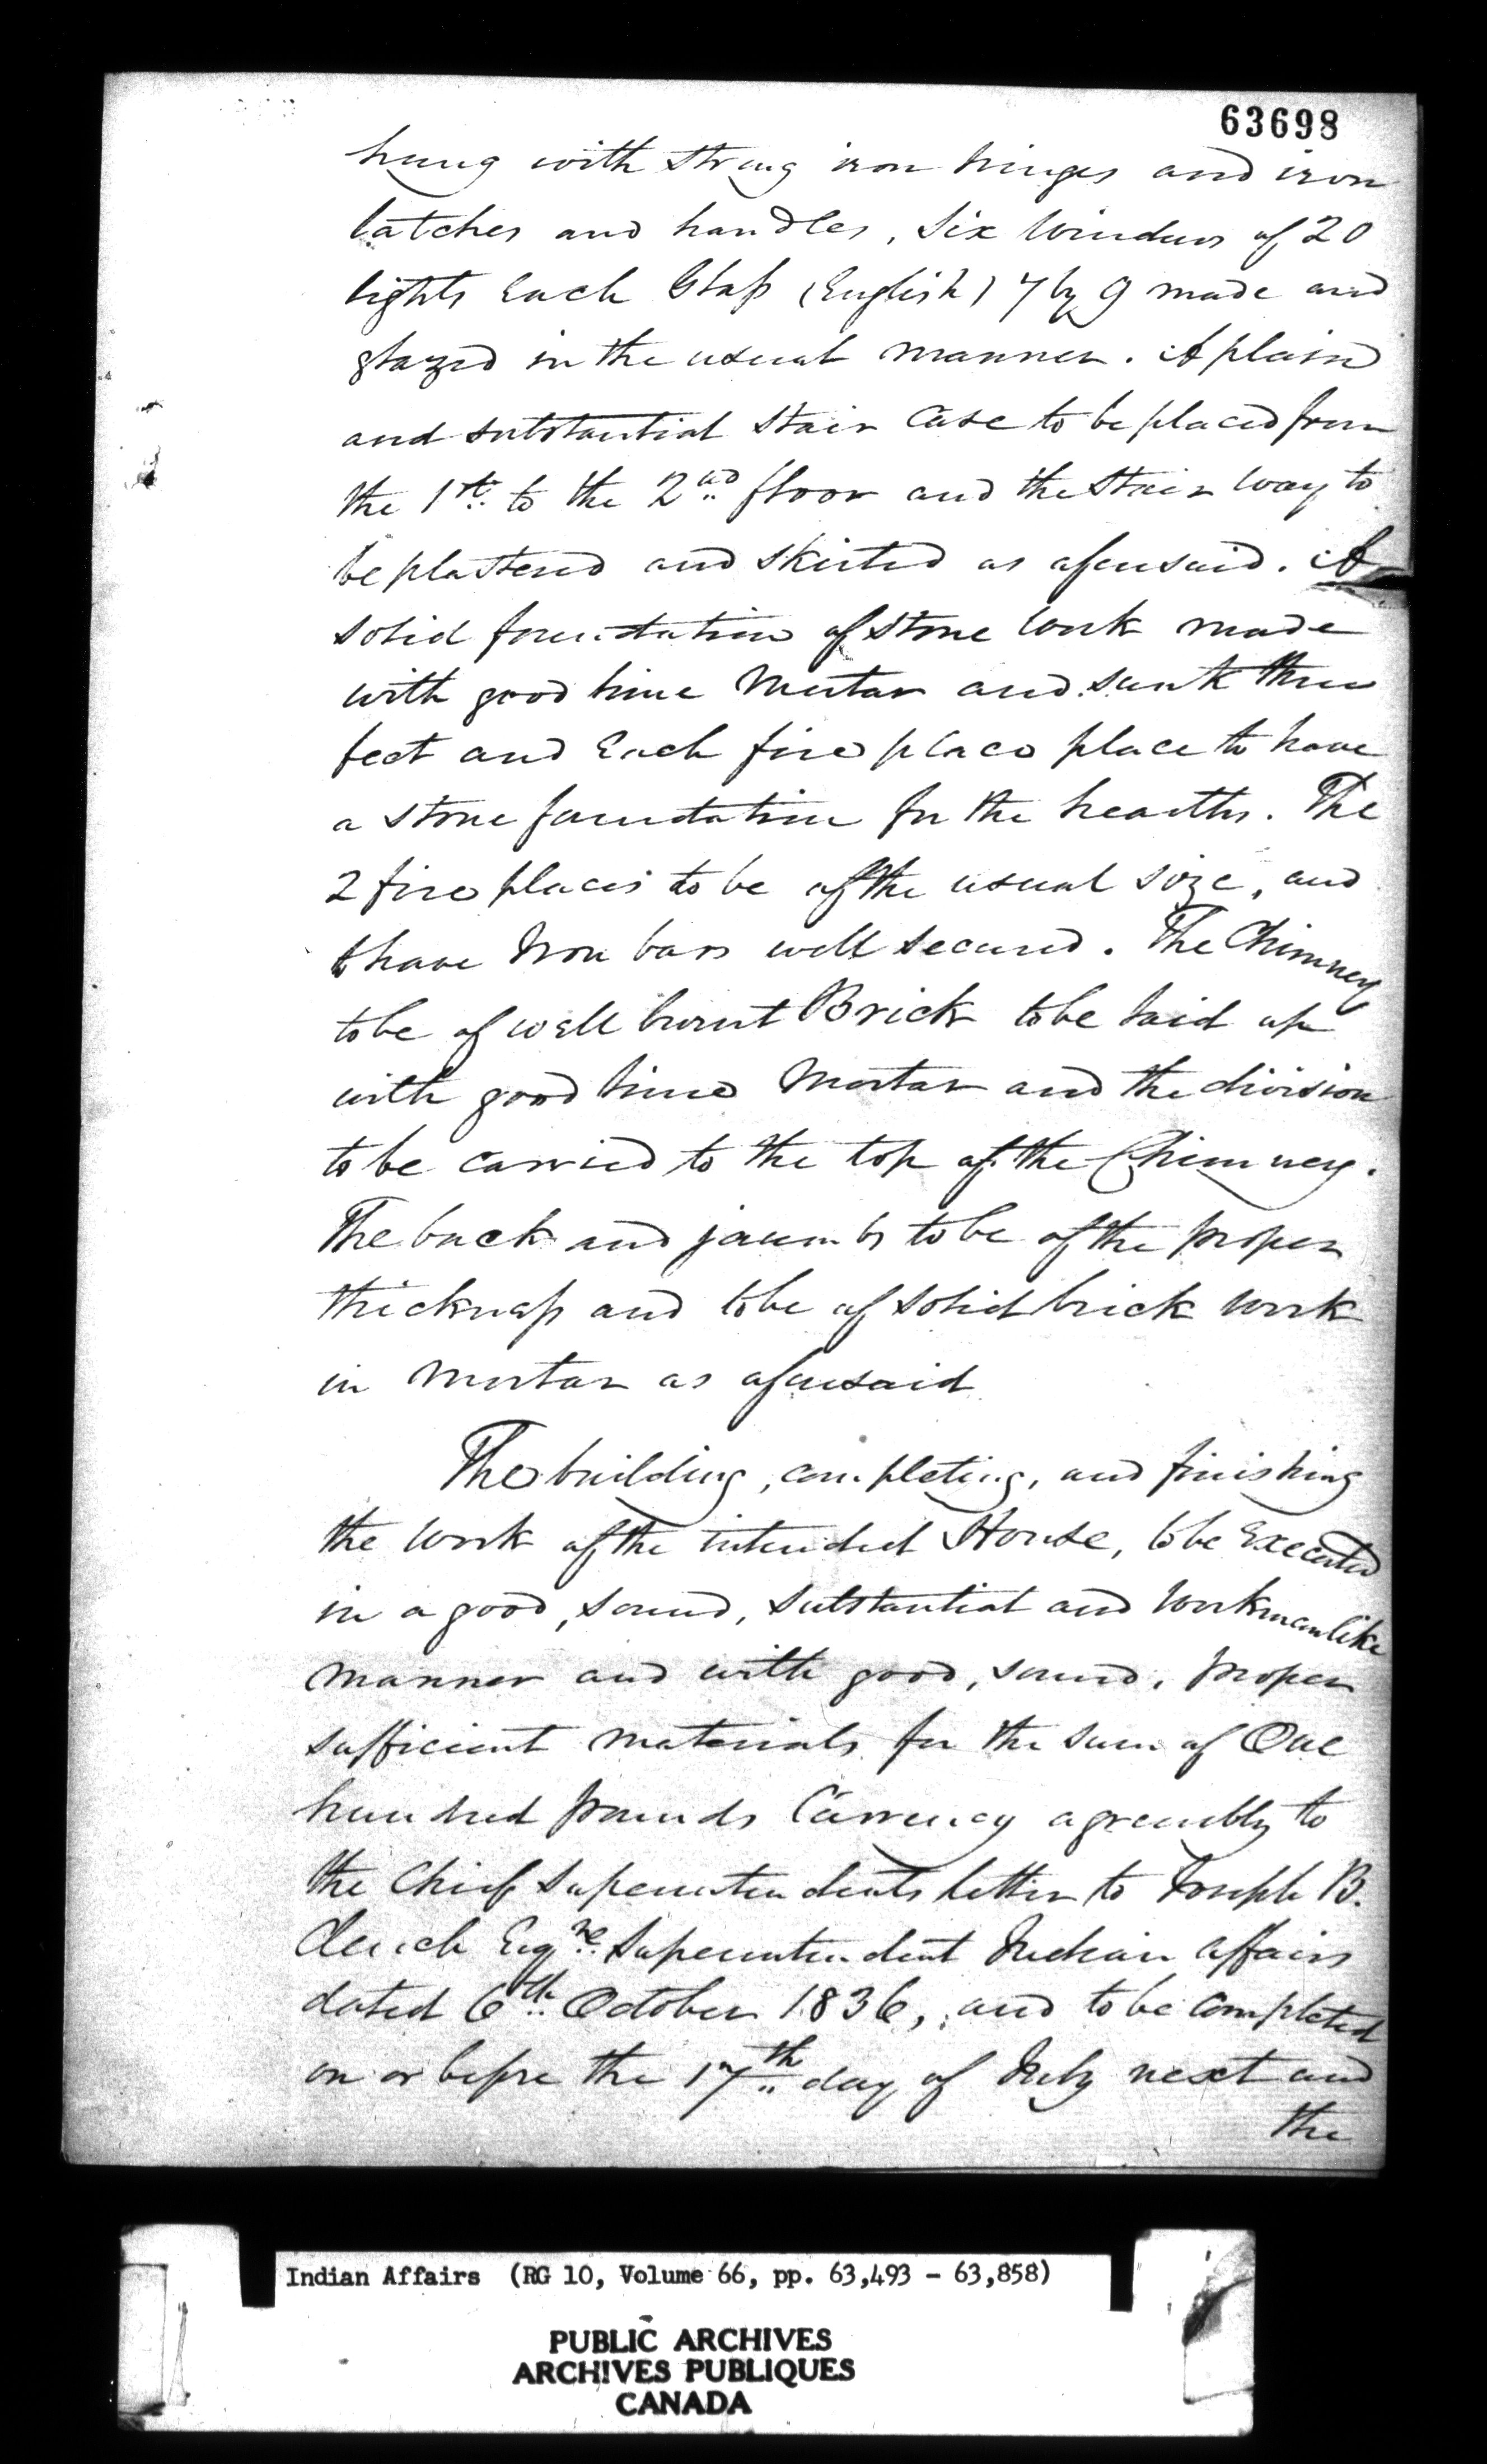 63698
hung with strong iron hinges and iron
latches and handles, Six Windows of 20
lights Each Glass (English) 7 by 9 made and
glazed in the usual manner. A plain
and substantial Stair Case to be placed from
the 1st to the 2nd floor and the Stair way to
be plastered and skirted as aforesaid. A
solid foundation of Stone Work made
with good lime Mortar and sunk three
feet and Each fire place place to have
a Stone foundation for the hearths. The
2 fire places to be of the usual size, and
to have Iron bars well secured. The Chimney
to be of well burnt Brick to be laid up
with good lime Mortar and the division
to be carried to the top of the Chimney.
The back and jaumbs to be of the proper
thickness and to be of solid brick work
in Mortar as aforesaid
The building, completing, and finishing
the Work of the intended House, to be Executed
in a good, sound, substantial and Workmanlike
manner and with good, sound, proper
sufficient materials for the sum of One
hundred pounds Currency agreeably to
the Chief Superintendents letter to Joseph B.
Clench Esqre Superintendent Indian Affairs
dated 6th October 1836, and to be Completed
on or before the 17th day of July next and
the
Indian Affairs (RG 10, Volume 66, pp. 63,493 - 63,858)
PUBLIC ARCHIVES
ARCHIVES PUBLIQUES
CANADA